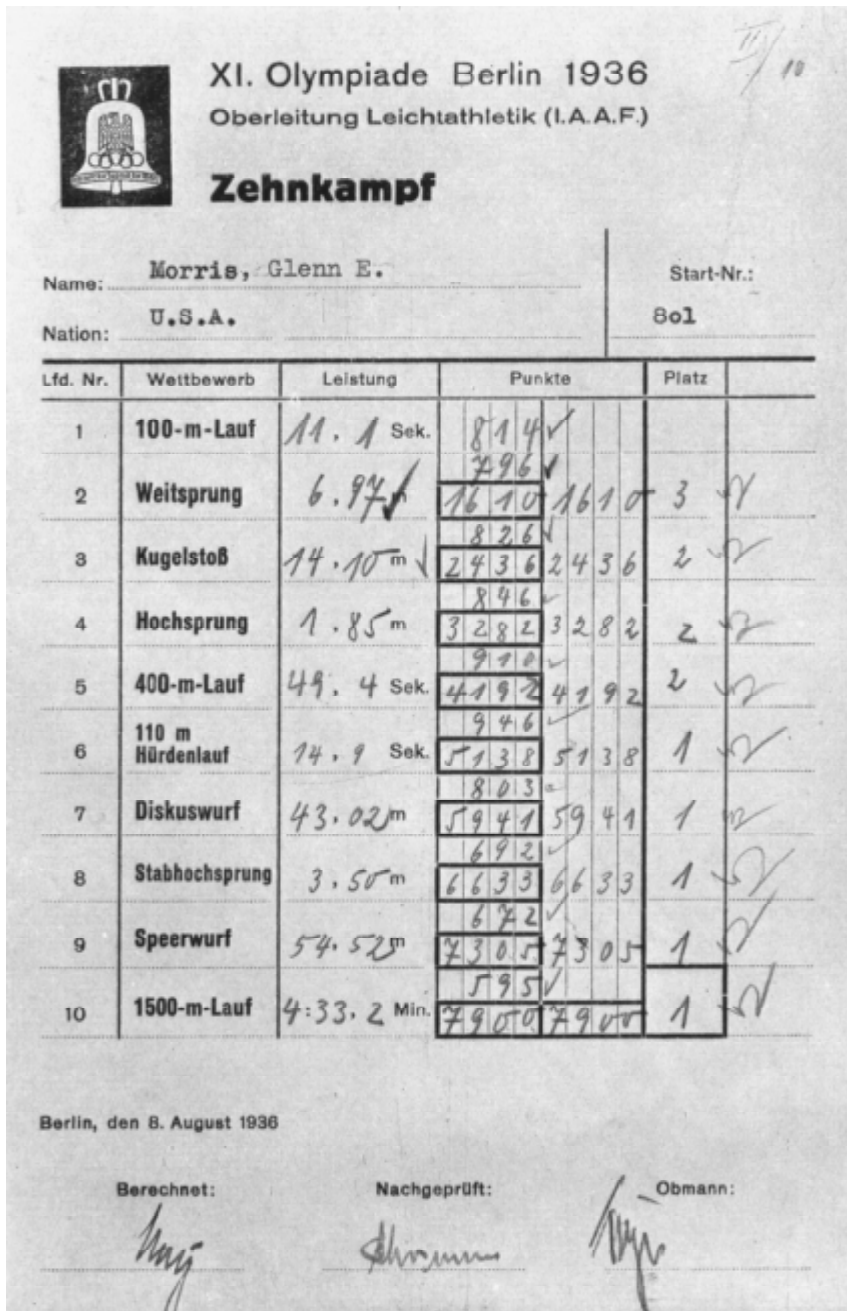 II/10
XI. Olympiade Berlin 1936
Oberleitung Leichtathletik (I.A.A.F.)
Zehnkampf
Name: Morris, Glenn E.
Start-Nr.:
Nation: U.S.A.
8o1
Lfd. Nr. Wettbewerb Leistung Punkte Platz
1 100-m-Lauf 11.1 Sek. 814
796
2 Weitsprung 6.97 m 1610 1610 3
826
3 Kugelstoß 14.10 m 2436 2436 2
846
4 Hochsprung 1.85 m 3282 3282 2
910
5 400-m-Lauf 49.4 Sek. 4192 4192 2
946
6 110 m Hürdenlauf 14.9 Sek. 5138 5138 1
803
7 Diskuswurf 43.02 m 5941 5941 1
692
8 Stabhochsprung 3.50 m 6633 6633 1
672
9 Speerwurf 54.52 m 7305 7305 1
595
10 1500-m-Lauf 4:33.2 Min. 7900 7900 1
Berlin, den 8. August 1936
Berechnet: Nachgeprüft: Obmann: